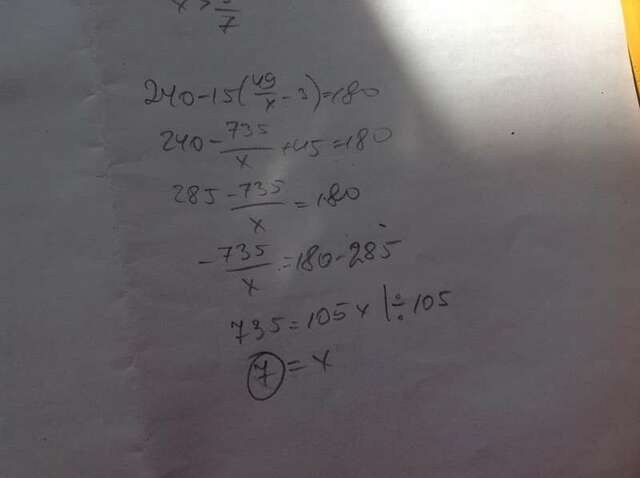 240-15(49/x-3)=180
240-735/x+45=180
285-735/x=180
-735/x=180-285
735=105x|÷105
7=x